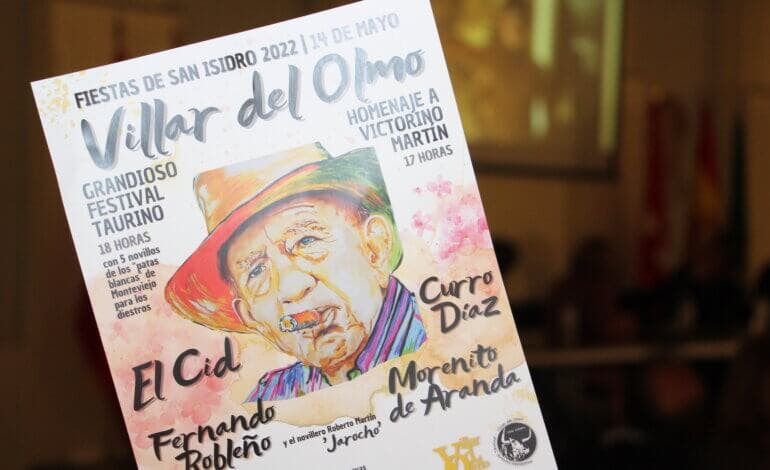 FIESTAS DE SAN ISIDRO 2022 | 14 DE MAYO
Villar del Olmo
HOMENAJE A
VICTORINO
MARTÍN
17 HORAS
GRANDIOSO
FESTIVAL
TAURINO
18 HORAS
con 5 novillos
de los "patas
blancas" de
Monteviejo
para los
diestros
Curro
Díaz
El Cid
Morenito
de Aranda
Fernando
Robleño
y el novillero Roberto Martín
'Jarocho'